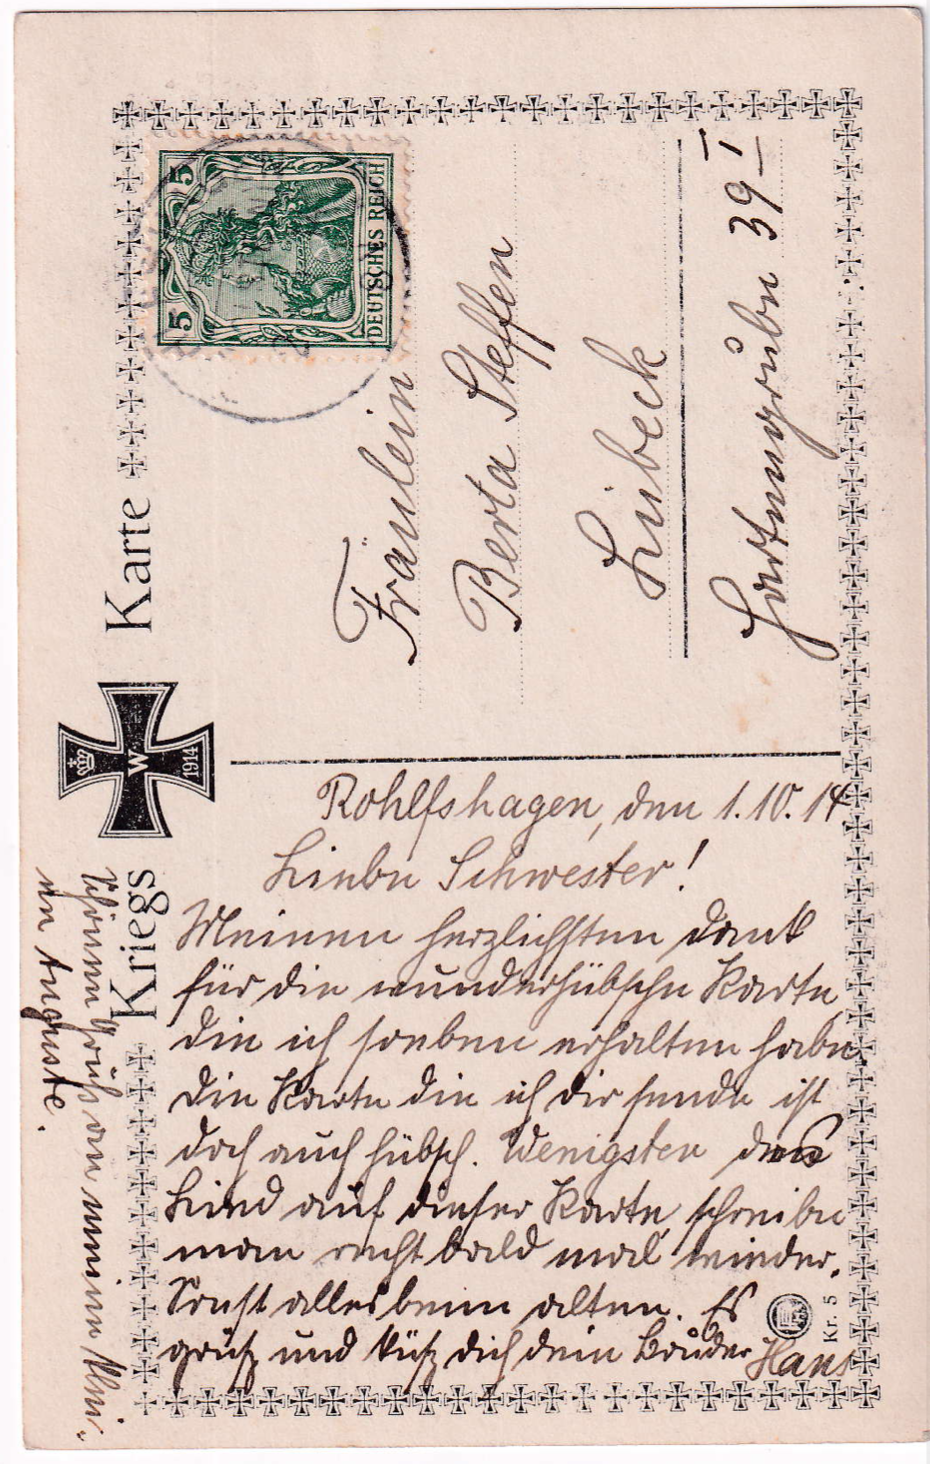 Kriegs Karte
W
1914
5 5
DEUTSCHES REICH
Fräulein
Berta Steffen
Lübeck
Hartengrube 39 I
Rohlfshagen, den 1.10.14
Liebe Schwester!
Meinen herzlichsten Dank
für die wunderhübsche Karte,
die ich soeben erhalten habe.
Die Karte die ich dir sende ist
doch auch hübsch. Wenigsten das
Lied auf dieser Karte, schreibe
man recht bald mal wieder.
Sonst alles beim alten. Es
grüßt und küßt dich dein Bruder Hans
Kr. 5
Schönen Gruß an meine
Auguste.